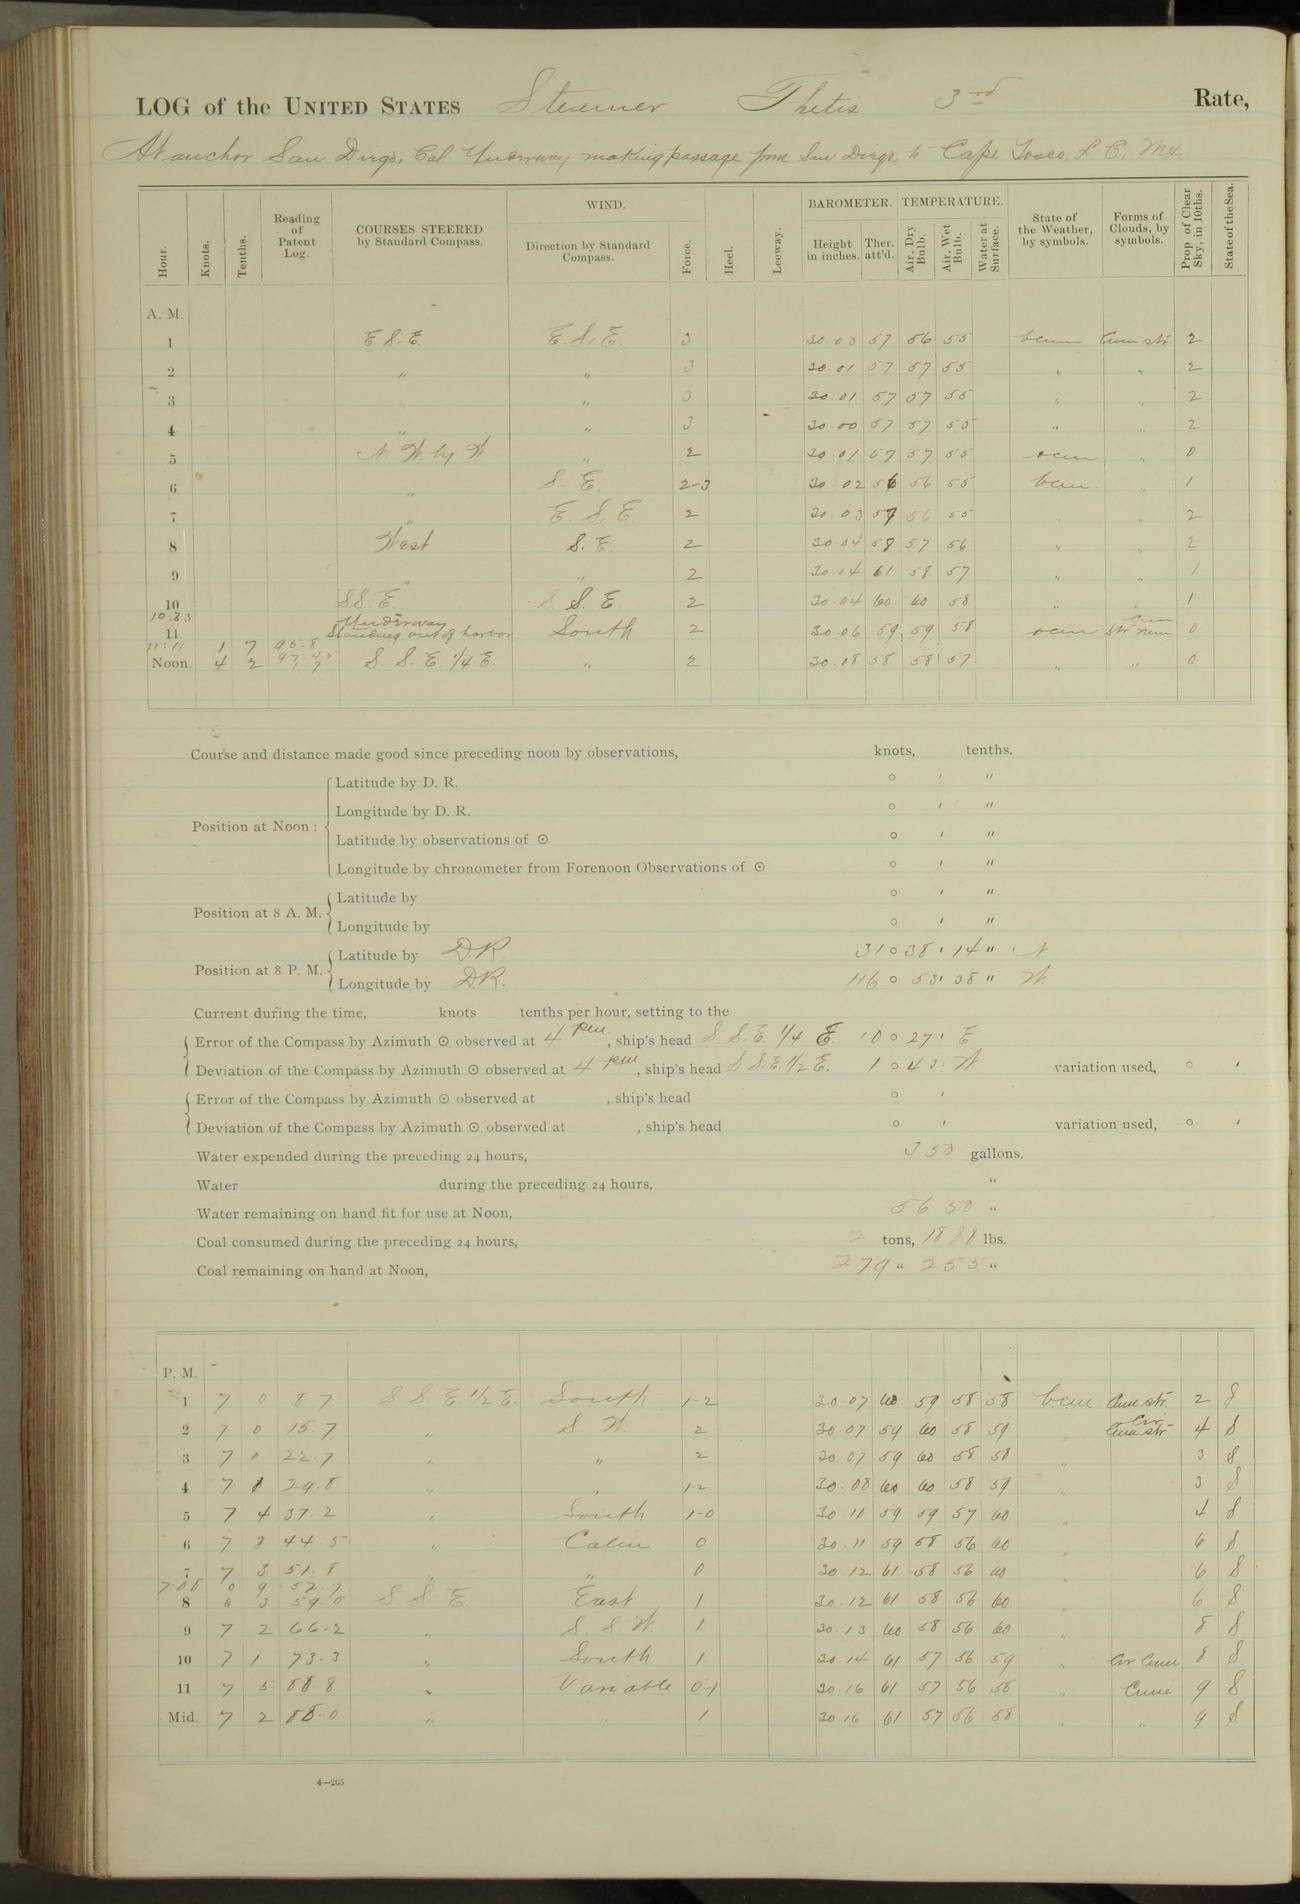 LOG of the UNITED STATES Steamer Thetis 3rd Rate,
At anchor San Diego, Cal Underway making passage from San Diego, to Cape Tosco, L. C. Mx
WIND. BAROMETER. TEMPERATURE.
Hour. Knots. Tenths. Reading of Patent Log. COURSES STEERED by Standard Compass. Direction by Standard Compass. Force. Heel. Leeway. Height in inches. Ther. att'd. Air, Dry Bulb. Air, Wet Bulb. Water at Surface. State of the Weather, by symbols. Forms of Clouds, by symbols. Prop. of Clear Sky, in 10ths. State of the Sea.
A. M.
1 E. S. E. E. S. E. 3 30.03 57 56 55 bcum Cum str 2
2 " " 3 30.01 57 57 55 " " 2
3 " " 3 30.01 57 57 55 " " 2
4 " " 3 30.00 57 57 55 " " 2
5 N W by W " 2 30.01 57 57 55 ocum " 0
6 " S. E. 2-3 30.02 56 56 55 bcum " 1
7 " E. S. E. 2 30.03 57 56 55 " " 2
8 West S. E. 2 30.04 57 56 " " 2
9 " " 2 30.04 61 58 57 " " 1
10 S S. E. S. S. E 2 30.04 60 60 58 " " 1
10.23 Underway
11 Standing out of harbor South 2 30.06 59 59 58 ocum Cum Str Num 0
11:11 1 7 95.8
Noon. 4 2 S. S. E. 1/4 E. " 2 30.08 58 58 57 " " 0
Course and distance made good since preceding noon by observations, knots, tenths.
Latitude by D. R. ° ′ ″
Longitude by D. R. ° ′ ″
Position at Noon :
Latitude by observations of ⊙ ° ′ ″
Longitude by chronometer from Forenoon Observations of ⊙ ° ′ ″
Position at 8 A. M. Latitude by ° ′ ″
Longitude by ° ′ ″
Position at 8 P. M. Latitude by DR. 31° 38′ 14″ N
Longitude by DR. 116° 53′ 38″ W.
Current during the time, knots tenths per hour, setting to the
Error of the Compass by Azimuth ⊙ observed at 4 pm, ship's head S. S. E. 1/4 E. 10° 27′ E
Deviation of the Compass by Azimuth ⊙ observed at 4 pm, ship's head S S. E. 1/2 E. 1° 43′ W variation used, ° ′
Error of the Compass by Azimuth ⊙ observed at , ship's head ° ′
Deviation of the Compass by Azimuth ⊙ observed at , ship's head ° ′ variation used, ° ′
Water expended during the preceding 24 hours, 350 gallons.
Water during the preceding 24 hours, "
Water remaining on hand fit for use at Noon, 5650 "
Coal consumed during the preceding 24 hours, 2 tons, 1888 lbs.
Coal remaining on hand at Noon, 279 " 255 "
P. M.
1 7 0 8 7 S S E 1/2 E. South 1-2 30 07 60 59 58 58 bcum Cum str. 2 S
2 7 0 15.7 " S. W. 2 30.07 59 60 58 59 " Cir Cum str 4 S
3 7 0 22.7 " " 2 30.07 59 60 58 58 " 3 S
4 7 1 29.8 " " 1-2 30.08 60 60 58 59 " 3 S
5 7 4 37.2 " South 1-0 30.10 59 59 57 60 " 4 S
6 7 3 44.5 " Calm 0 30.11 59 58 56 60 " 6 S
7 7 3 51.8 " " 0 30.12 61 58 56 60 " 6 S
7.08 0 9 52.7
8 6 3 59.0 S. S. E. East 1 30.12 61 58 56 60 " 6 S
9 7 2 66.2 " S. S W. 1 30.13 60 58 56 60 " 8 S
10 7 1 73.3 " South 1 30.14 61 57 56 59 " Cir Cum 8 S
11 7 5 80.8 " Variable 0-1 30.16 61 57 56 58 " Cum 9 S
Mid. 7 2 88.0 " " 1 30.16 61 57 56 58 " " 9 S
4—265